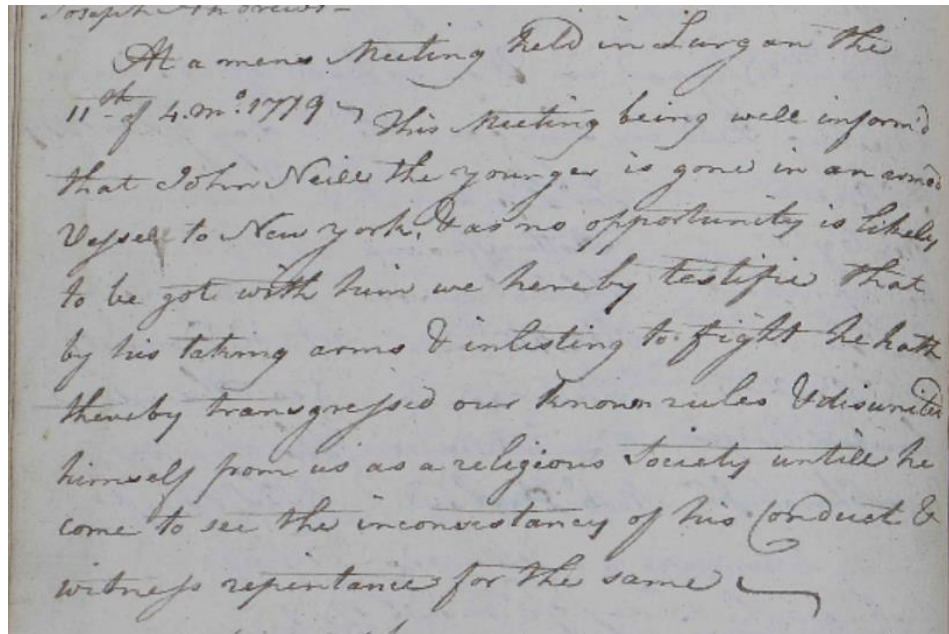 Joseph Andrews -
At a mens Meeting held in Lurgan the
11th of 4.mo. 1779 This Meeting being well inform'd
that John Neill the younger is gone in an armd
Vessell to New york, & as no opportunity is likely
to be got with him we hereby testifie that
by his taking arms & inlisting to fight he hath
thereby transgressed our known rules & disunited
himself from us as a religious Society untill he
come to see the inconsistancy of his Conduct &
witness repentance for the same